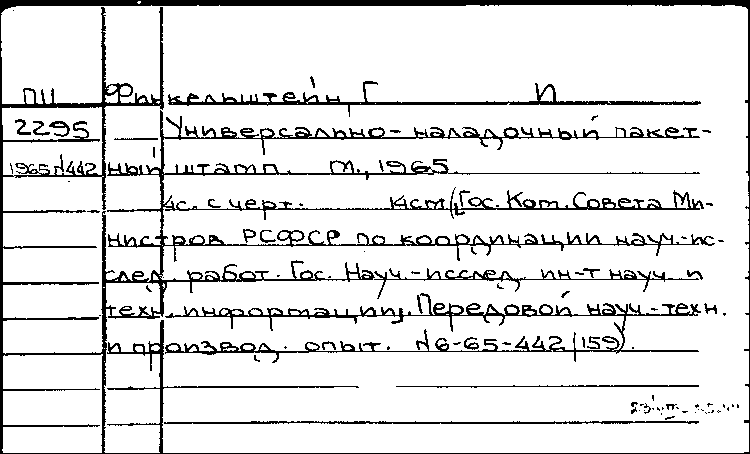 ПЦ Финкельштейн, Г И
2295 Универсально-наладочный пакет-
1965 №442 ный штамп. М., 1965.
4с. с черт. 14см ([Гос. Ком. Совета Ми-
нистров РСФСР по координации науч.-ис-
след. работ. Гос. Науч.-исслед. ин-т науч. и
техн. информации]. Передовой науч.-техн.
и производ. опыт. №6-65-442/159).